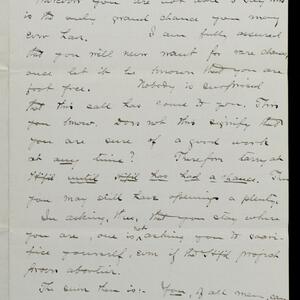 you are not able to say this
is the only grand chance you may
ever have. I am fully assured
that you will never want for rare chances,
once let it be known that you are
foot free. Nobody is surprised
that this call has come to you. This
you know. Does not this signify that
you are sure of a good work
at any time? Therefore tarry at
until has had a chance. Thus
you may still have openings a plenty.
In asking, thus, that you stay where
you are, one is not asking you to sacri-
fice yourself, even if the proposi-
tion
The sum then is:- You, of all men, can